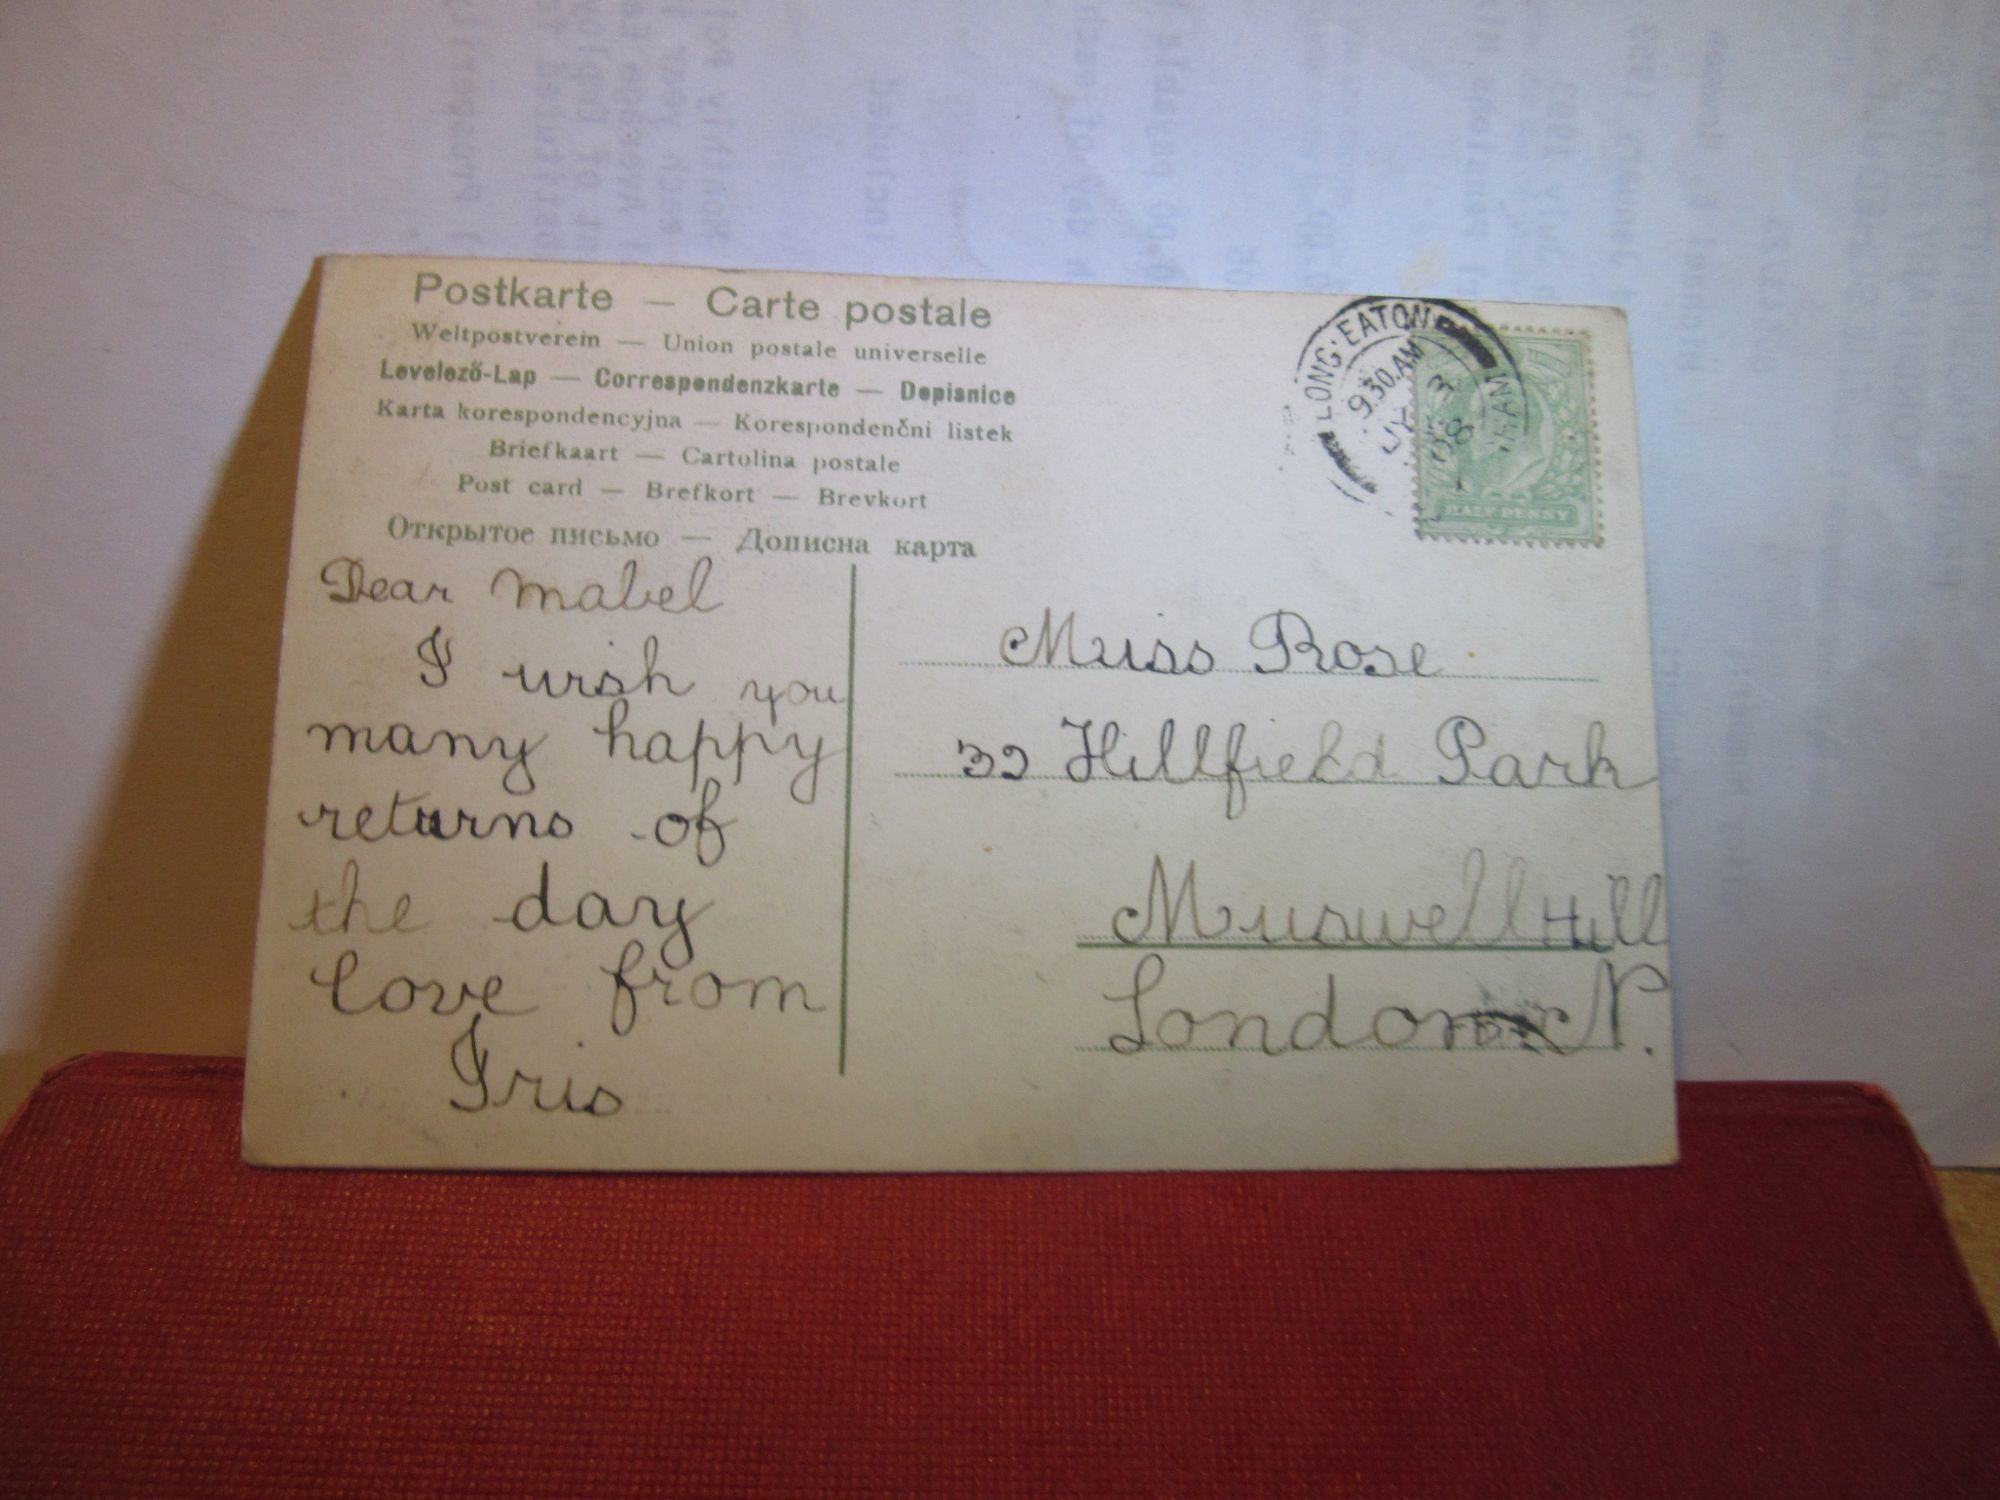 Postkarte — Carte postale
Weltpostverein — Union postale universelle
Levelező-Lap — Correspondenzkarte — Dopisnice
Karta korespondencyjna — Korespondenčni listek
Briefkaart — Cartolina postale
Post card — Brefkort — Brevkort
Открытое письмо — Дописна карта
LONG·EATON
9.30.AM
3
08
HALF PENNY
Dear Mabel
I wish you
many happy
returns of
the day
love from
Iris
Miss Rose
32 Hillfield Park
Muswell Hill
London N.